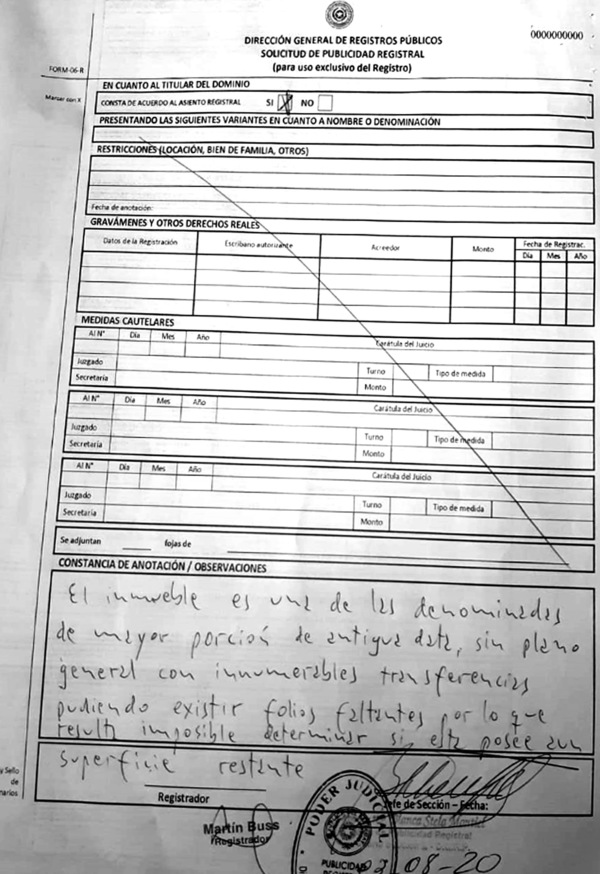 DIRECCIÓN GENERAL DE REGISTROS PÚBLICOS
0000000000
SOLICITUD DE PUBLICIDAD REGISTRAL
(para uso exclusivo del Registro)
FORM-06-R
EN CUANTO AL TITULAR DEL DOMINIO
Marcar con X
CONSTA DE ACUERDO AL ASIENTO REGISTRAL SI X NO
PRESENTANDO LAS SIGUIENTES VARIANTES EN CUANTO A NOMBRE O DENOMINACIÓN
RESTRICCIONES (LOCACIÓN, BIEN DE FAMILIA, OTROS)
Fecha de anotación:
GRAVÁMENES Y OTROS DERECHOS REALES
Datos de la Registración Escribano autorizante Acreedor Monto Fecha de Registrac.
Día Mes Año
MEDIDAS CAUTELARES
AI N° Día Mes Año Carátula del Juicio
Juzgado Turno Tipo de medida
Secretaría Monto
AI N° Día Mes Año Carátula del Juicio
Juzgado Turno Tipo de medida
Secretaría Monto
AI N° Día Mes Año Carátula del Juicio
Juzgado Turno Tipo de medida
Secretaría Monto
Se adjuntan fojas de
CONSTANCIA DE ANOTACIÓN / OBSERVACIONES
El inmueble es una de las denominadas
de mayor porción de antigua data, sin plano
general con innumerables transferencias
pudiendo existir folios faltantes por lo que
resulta imposible determinar si esta posee aun
superficie restante
y Sello
de
narios
Registrador
Jefe de Sección – Fecha:
Martín Buss
Registrador
Blanca Stela Montiel
Publicidad Registral
PODER JUDICIAL
PUBLICIDAD
08-20